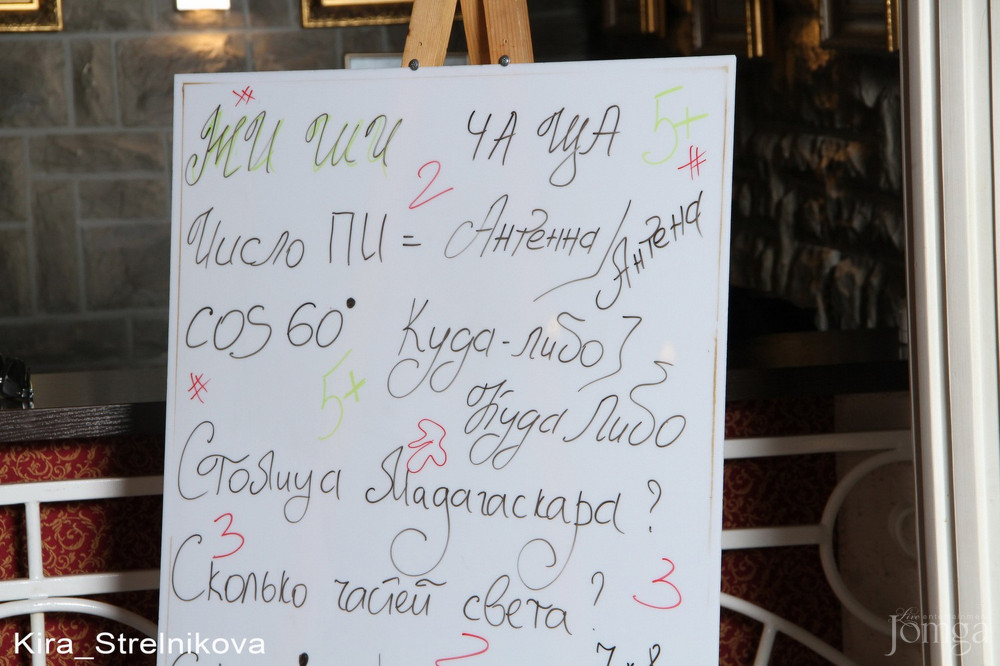 ЖИ ШИ ЧА ЩА 5+
2
Число ПИ = Антенна / Антена
COS 60° Куда-либо
Куда Либо
5+
Столица Мадагаскара ?
3
Сколько частей света ? 3
Kira_Strelnikova
Live entertainment
Jomga